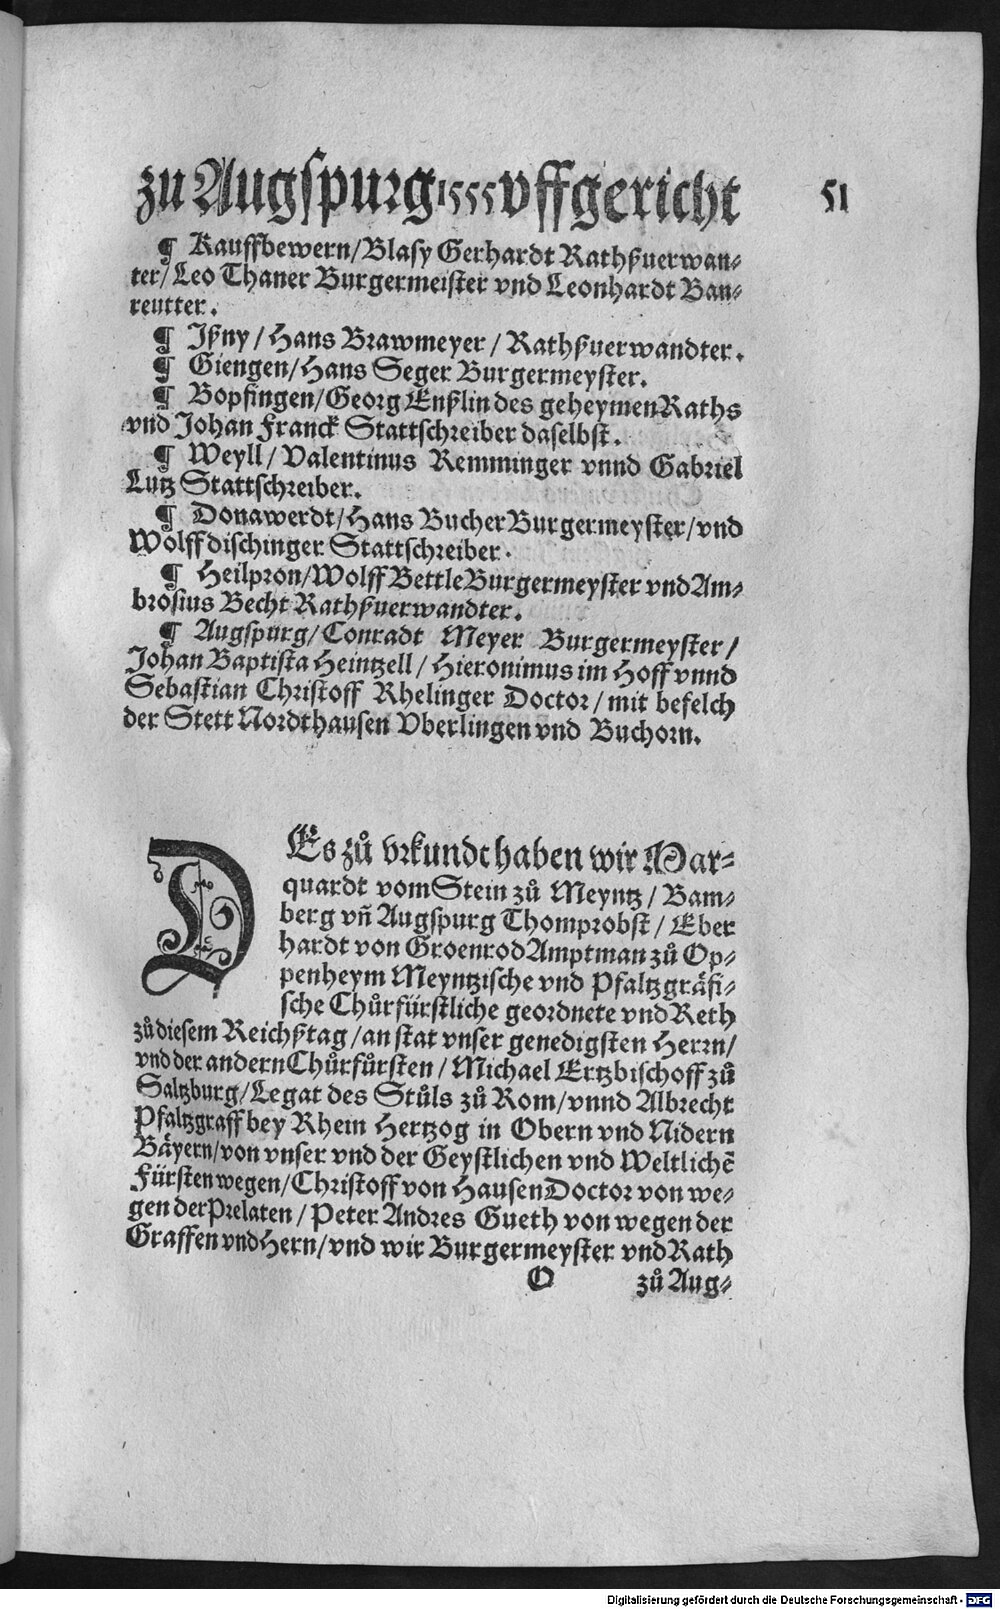 zu Augspurg 1555 vffgericht 51
¶ Kauffbewern/Blasy Gerhardt Rathßuerwan⸗
ter/Leo Thaner Burgermeister vnd Leonhardt Ban⸗
reutter.
¶ Ißny/Hans Brawmeyer/Rathßuerwandter.
¶ Giengen/Hans Seger Burgermeyster.
¶ Bopfingen/Georg Enßlin des geheymen Raths
vnd Johan Franck Stattschreiber daselbst.
¶ Weyll/Valentinus Remminger vnnd Gabriel
Lutz Stattschreiber.
¶ Donawerdt/Hans Bucher Burgermeyster/vnd
Wolff dischinger Stattschreiber.
¶ Heilpron/Wolff Bettle Burgermeyster vnd Am⸗
brosius Becht Rathßuerwandter.
¶ Augspurg/Conradt Meyer Burgermeyster/
Johan Baptista Heintzell/Hieronimus im Hoff vnnd
Sebastian Christoff Rhelinger Doctor/mit befelch
der Stett Nordthausen Vberlingen vnd Buchorn.
DEs zů vrkundt haben wir Mar⸗
quardt vom Stein zů Meyntz/Bam⸗
berg vñ Augspurg Thomprobst/Eber
hardt von Groenrod Amptman zů Op⸗
penheym Meyntzische vnd Pfaltzgräfi⸗
sche Chůrfürstliche geordnete vnd Reth
zů diesem Reichßtag/an stat vnser genedigsten Herrn/
vnd der andern Chůrfůrsten/Michael Ertzbischoff zů
Saltzburg/Legat des Stůls zů Rom/vnnd Albrecht
Pfaltzgraff bey Rhein Hertzog in Obern vnd Nidern
Bäyern/von vnser vnd der Geystlichen vnd Weltlichē
Fürsten wegen/Christoff von Hausen Doctor von we⸗
gen der Prelaten/Peter Andres Gueth von wegen der
Graffen vnd Hern/vnd wir Burgermeyster vnd Rath
O zů Aug⸗
Digitalisierung gefördert durch die Deutsche Forschungsgemeinschaft - DFG